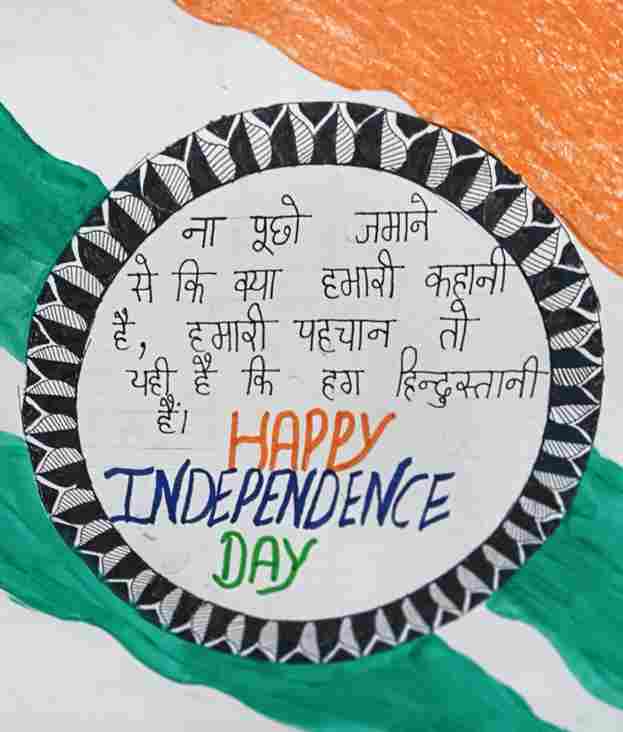 ना पूछो जमाने
से कि क्या हमारी कहानी
है, हमारी पहचान तो
यही है कि हग हिन्दुस्तानी
हैं।
HAPPY
INDEPENDENCE
DAY